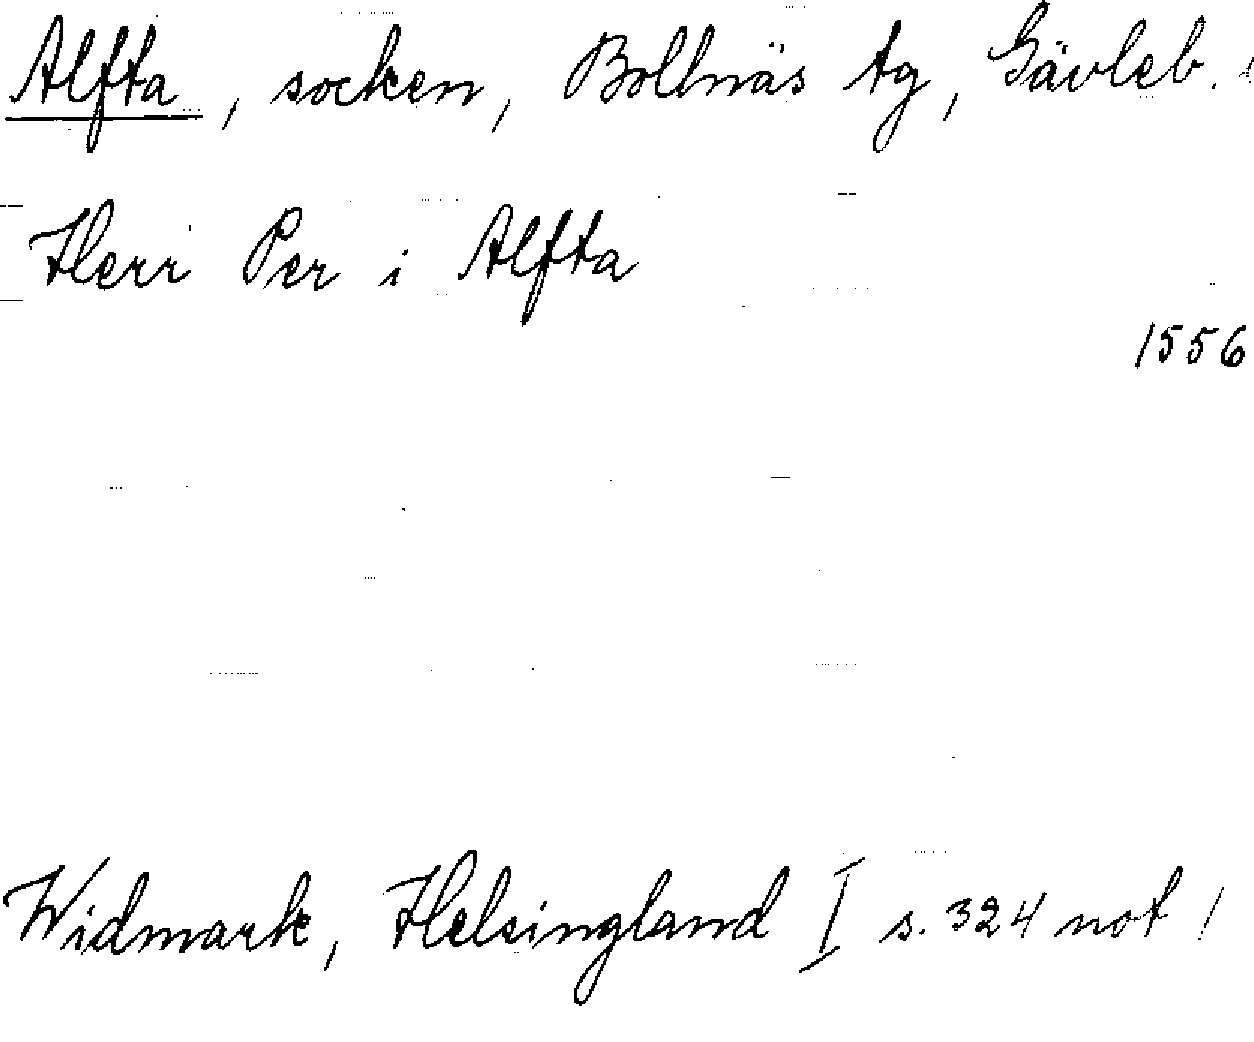 Alfta, socken, Bollnäs tg, Gävleb.
Herr Per i Alfta
1556
Widmark, Helsingland I s. 324 not 1